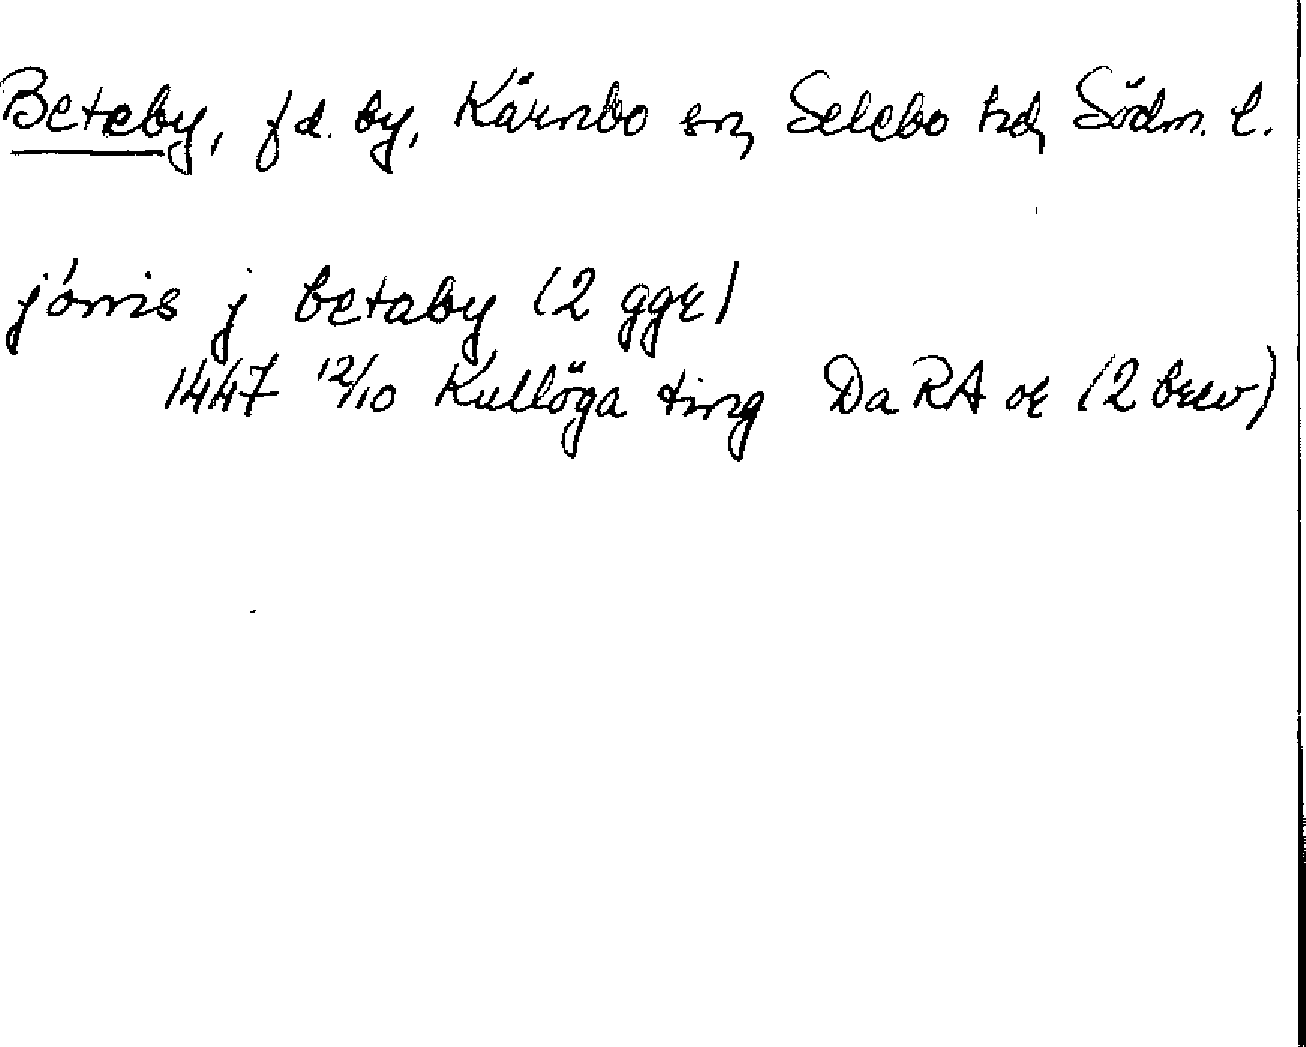 Beteby, f d. by, Kärnbo sn, Selebo hd, Södm. l.
jónis j betaby (2 ggr)
1447 12/10 Kullöga ting Da RA or (2 brev)